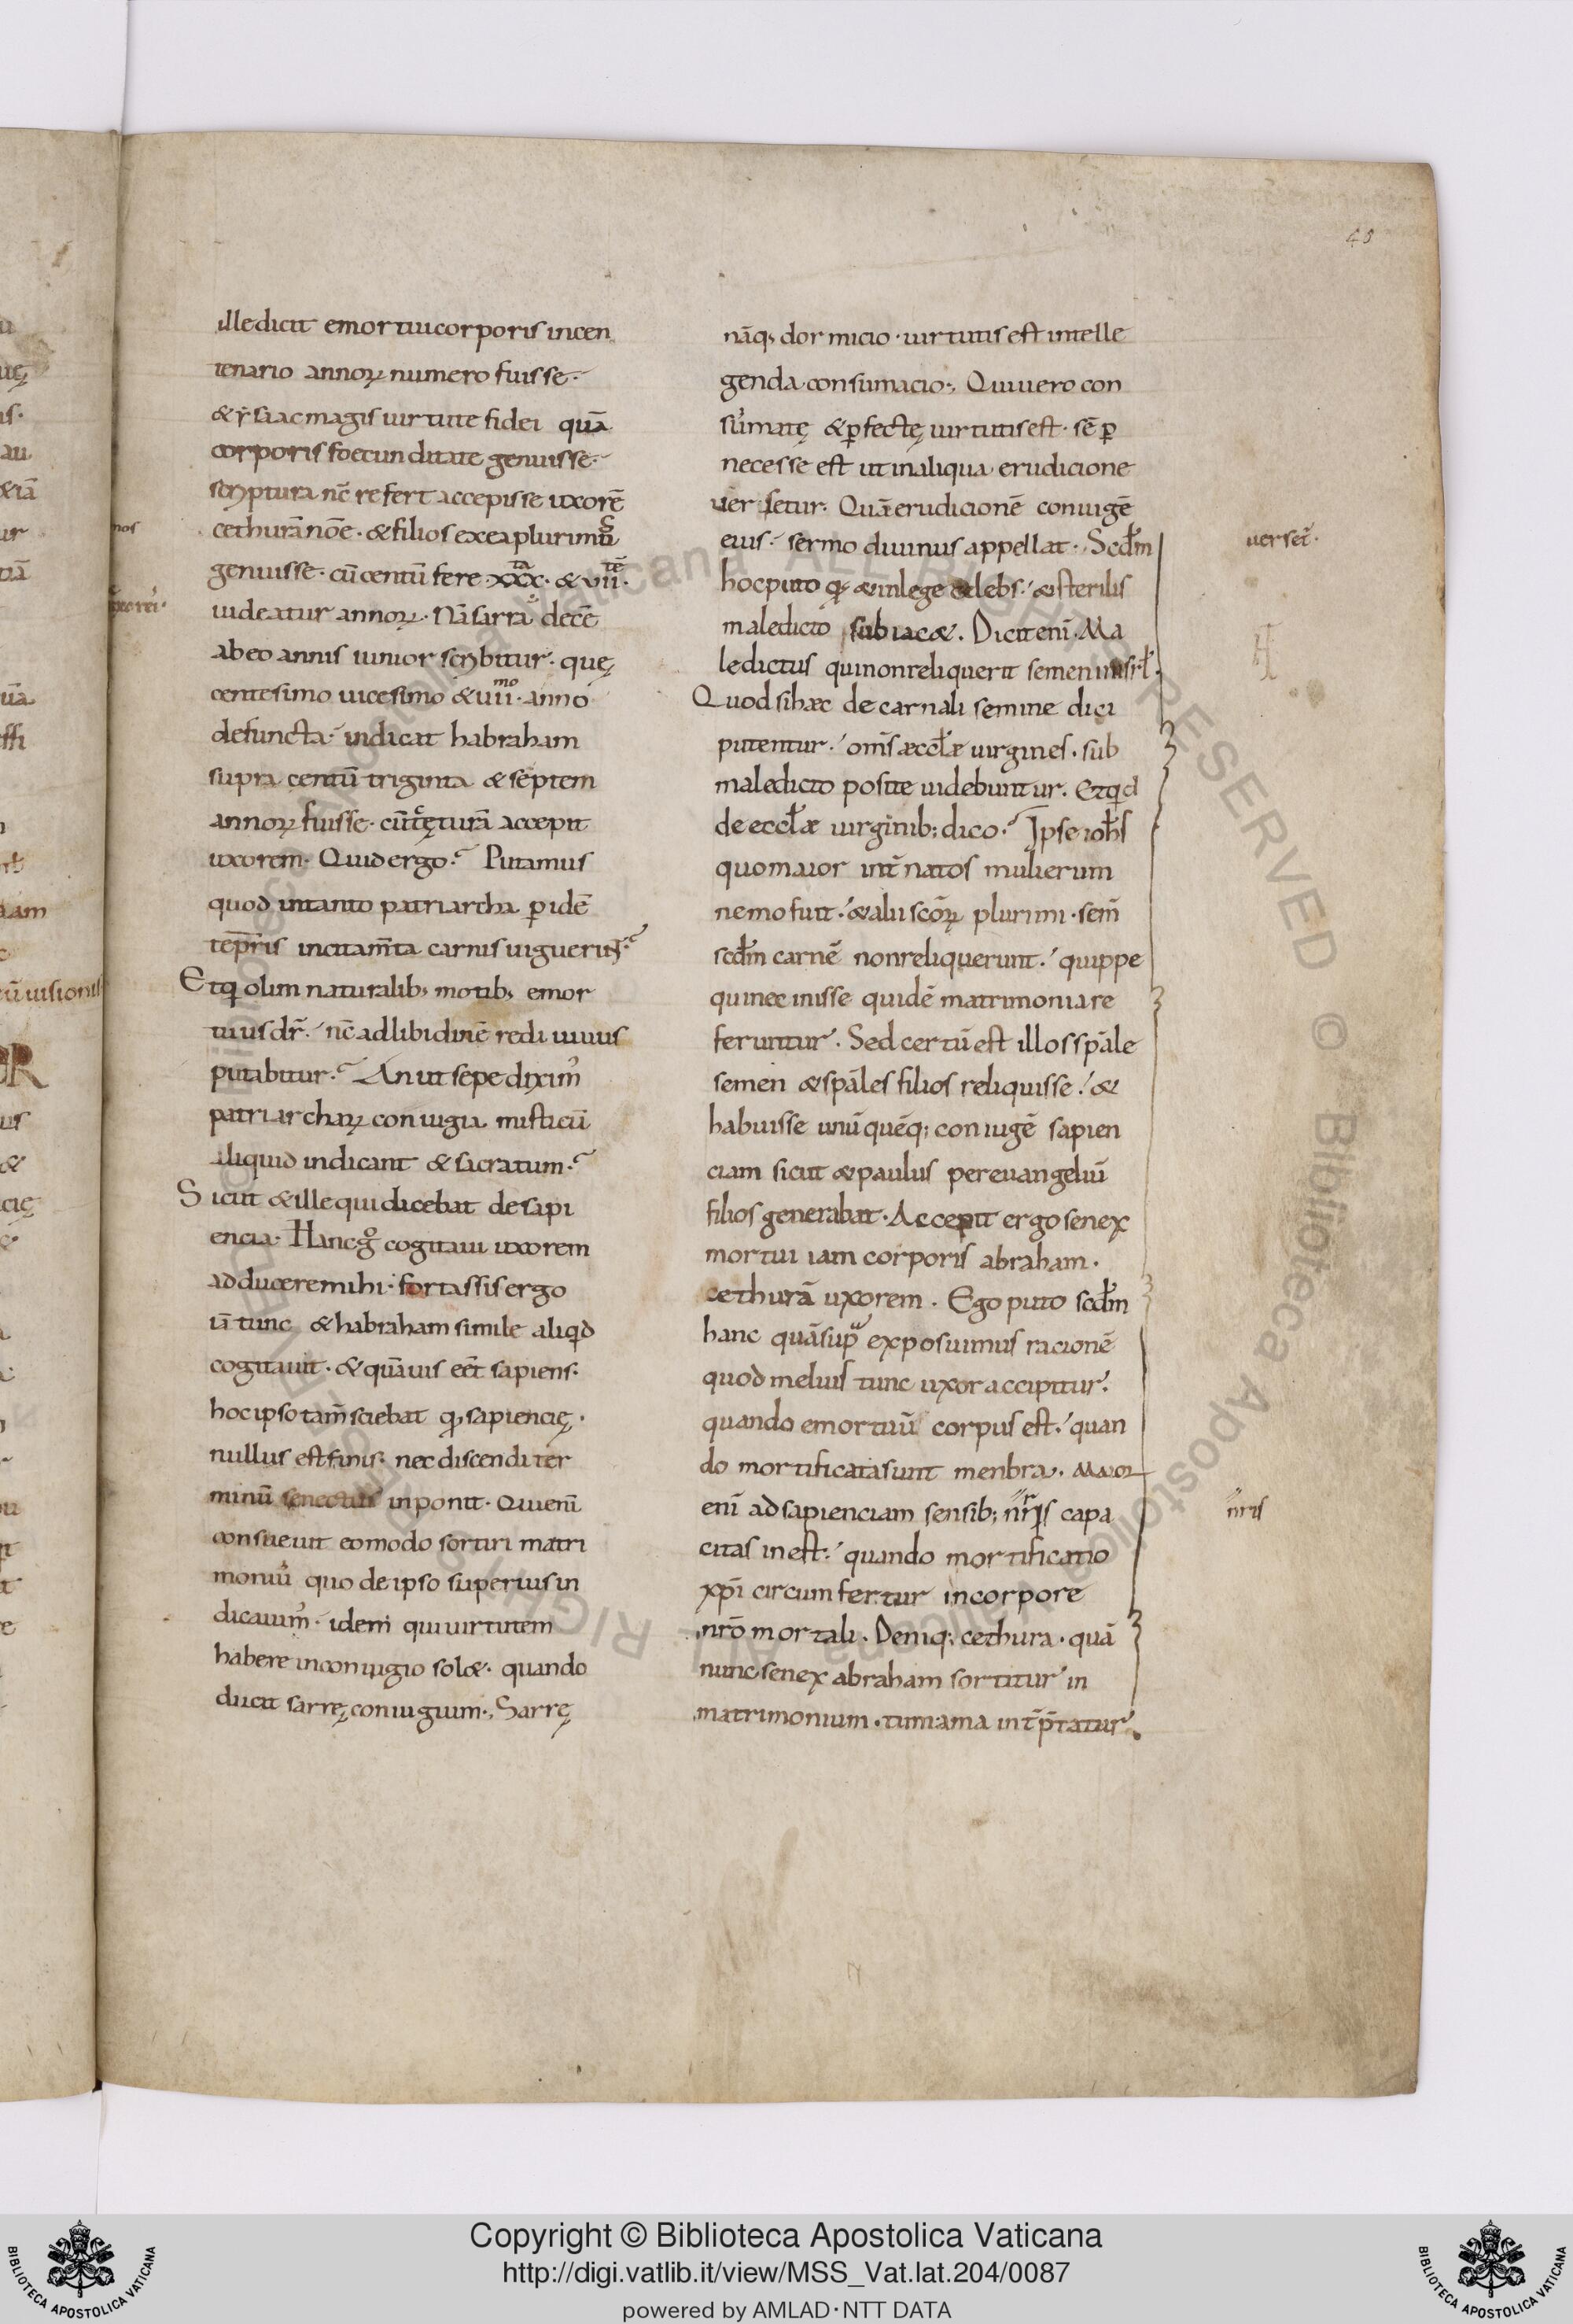 48
ille dicit emortui corporis in cen
tenario annoꝝ numero fuisse·
& ẏsaac magis uirtute fidei quā
corporis foecunditate genuisse·
scriptura nc̄ refert accepisse uxorē
cethurā nōe· & filios ex ea plurimū
genuisse· cū centū fere xxx^ta· & vii^tē·
uideatur annoꝝ· Nā sarra decē
ab eo annis iunior scribitur· quę
centesimo uicesimo & vii^mo· anno
defuncta· indicat habraham
supra centū triginta & septem
annoꝝ fuisse· cū cęturā accepit
uxorem· Quid ergo? Putamus
quod in tanto patriarcha ꝑ idē
tēpris incitam̄ta carnis uiguerint?
Et qi olim naturalib; motib; emor
tuus dr̄· nc̄ ad libidinē rediuiuus
putabitur? An ut sepe dixim᾽
patriarchaꝝ coniugia misticū
aliquid indicant & sacratum?
Sicut & ille qui dicebat de sapi
encia· Hanc g̊ cogitaui uxorem
adducere mihi· fortassis ergo
iā tunc & habraham simile aliqd
cogitauit· & quāuis eēt sapiens·
hoc ipso tam̄ sciebat qđ sapiencię·
nullus est finis· nec discendi ter
minū senectus inponit· Qui enī
consueuit eo modo sortiri matri
moniū quo de ipso superius in
dicauim᾽· idem qui uirtutem
habere in coniugio sol&· quando
ducit sarrę coniugium·, Sarrę
nāq; dormicio· uirtutis est intelle
genda consumacio·, Qui uero con
sūmatę & ꝑfectę uirtutis est· sēꝑ
necesse est ut in aliqua erudicione
uersetur· Quā erudicionē coniugē
eius· sermo diuinus appellat· Scđm
hoc puto qđ & in lege cęlebs· & sterilis
maledicto subiac&. Dicit enī· Ma
ledictus qui non reliquerit semen in isrł·
Quod si hæc de carnali semine dici
putentur· om̄s æccłæ uirgines· sub
maledicto posite uidebuntur. Et qid
de eccłæ uirginib; dico? Ipse ioħs
quo maior int̄ natos mulierum
nemo fuit· & alii sc̄oꝝ plurimi· sem̄
scđm carnē non reliquerunt· quippe
qui nec inisse quidē matrimonia re
feruntur. Sed certū est illos spāle
semen & spāles filios reliquisse· &
habuisse unū quēq; coniugē sapien
ciam sicut & paulus per euangeliū
filios generabat· Accepit ergo senex
mortui iam corporis abraham·
cethurā uxorem. Ego puto scđm
hanc quā sup^a exposuimus racionē
quod melius tunc uxor accipitur·
quando emortuū corpus est· quan
do mortificata sunt menbra. Maior
enī ad sapienciam sensib; nr̄is capa
citas inest· quando mortificatio
xp̄i circumfertur in corpore
nr̄o mortali. Deniq; cethura· quā
nunc senex abraham sortitur in
matrimonium· timiama int̄p̄tatur·
uerset̄·
nris
nos
Copyright © Biblioteca Apostolica Vaticana
http://digi.vatlib.it/view/MSS_Vat.lat.204/0087
powered by AMLAD·NTT DATA
BIBLIOTECA APOSTOLICA VATICANA
BIBLIOTECA APOSTOLICA VATICANA